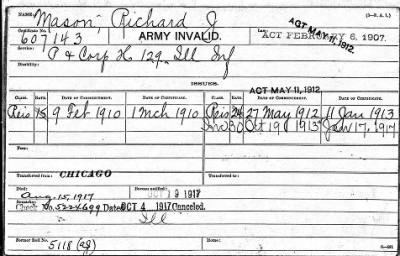 NAME: Mason, Richard J (3—R. A. I.)
Certificate No. 607143 ARMY INVALID. Law: ACT FEBRUARY 6, 1907. ACT MAY 11, 1912.
Service: P & Corp H. 129 Ill Inf
Disability:
ISSUES.
ACT MAY 11, 1912.
CLASS. RATE. DATE OF COMMENCEMENT. DATE OF CERTIFICATE. CLASS. RATE. DATE OF COMMENCEMENT. DATE OF CERTIFICATE.
Reis 15 9 Feb 1910 1 Mch 1910 Reis 27 May 1912 11 Jan 1913
30 Oct 19 1913 Jan 17, 1917
Fees:
Transferred from: CHICAGO Transferred to:
Died: Aug. 15, 1917 Bureau notified: OCT 19 1917
Remarks: Check No. 5224699 Dated OCT 4 1917 Canceled.
Ill
Former Roll No. 5118 Home: